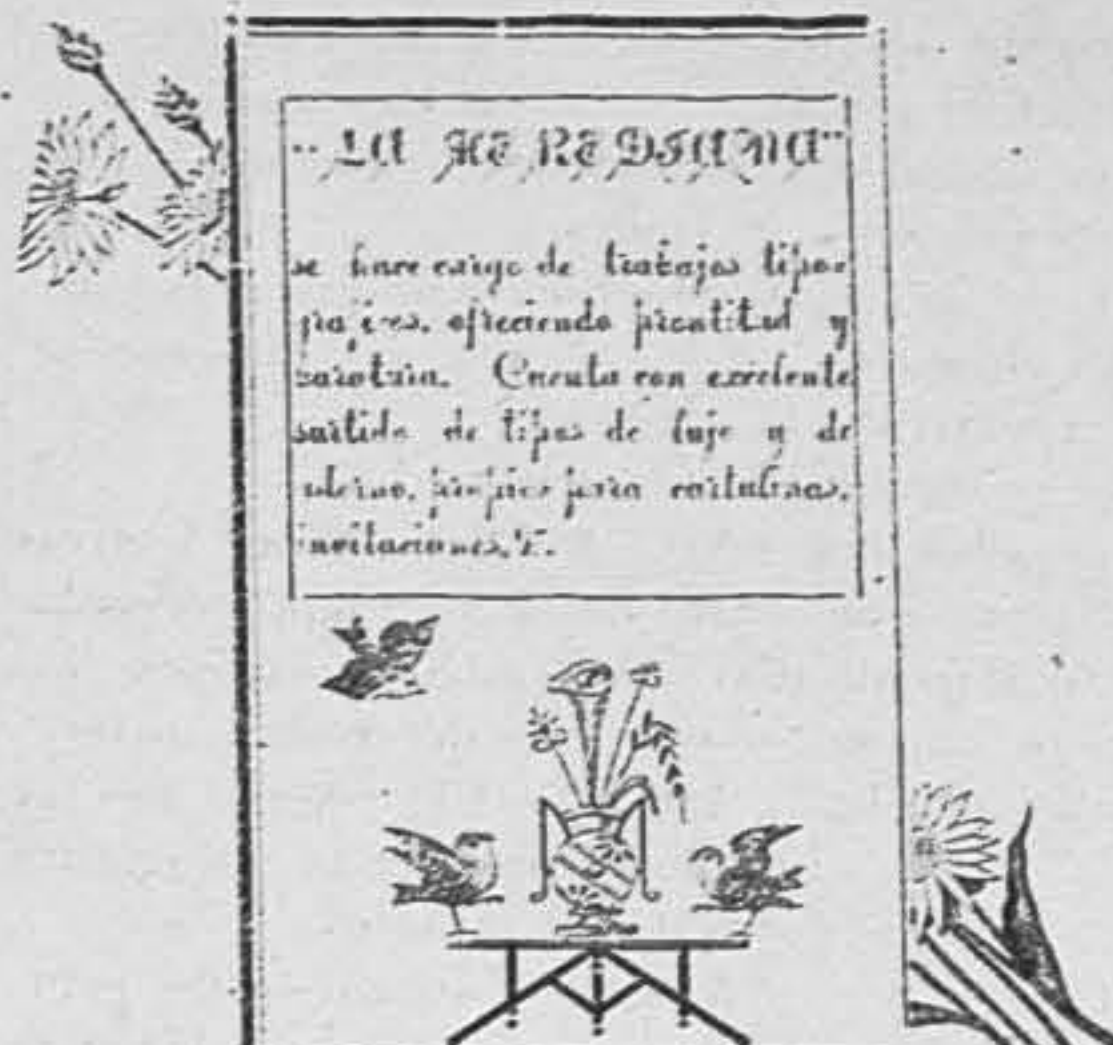 "LA HEREDIANA"
se hace cargo de trabajos tipo-
graficos, ofreciendo prontitud y
baratura. Cuenta con excelente
surtido de tipos de lujo y de
adorno, propios para cartulinas,
invitaciones, &.